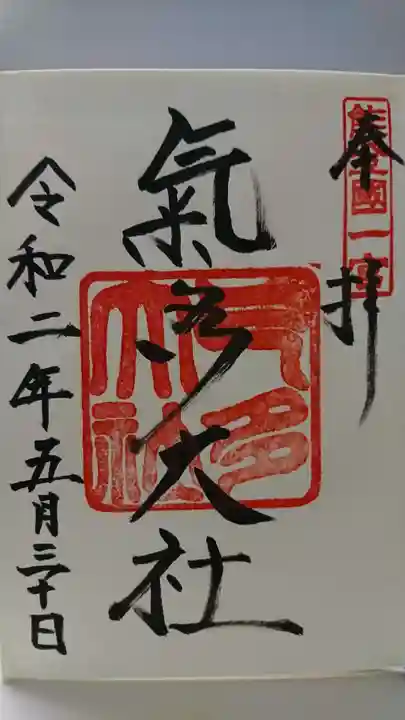 奉拝
能登國一宮
氣多大社
気多大社
令和二年五月三十日